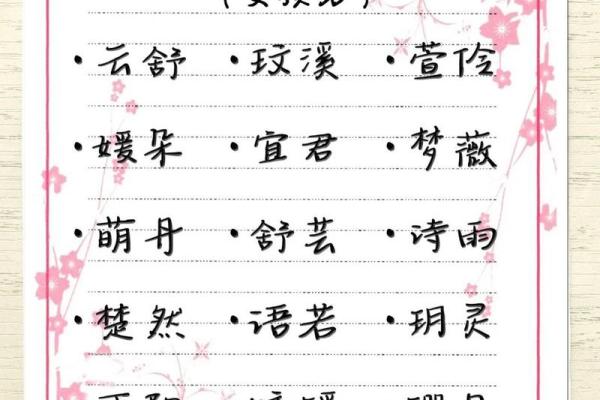 ·云舒 ·玟溪 ·萱伶
·媛朵 ·宜君 ·梦薇
·萌丹 ·舒芸 ·诗雨
·楚然 ·语若 ·玥灵